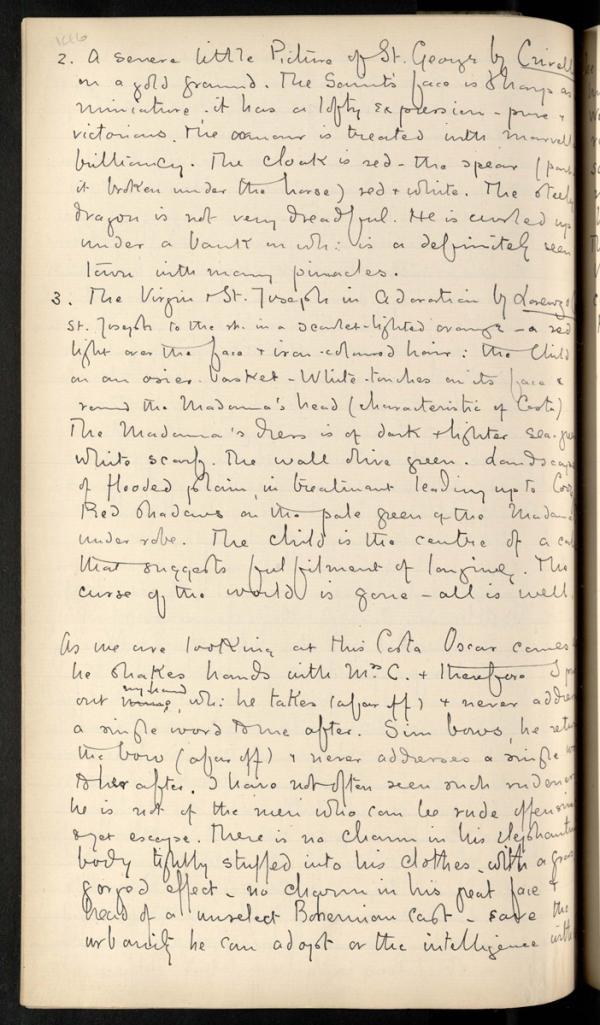 2. A severe little Picture of St. George by Crivelli
on a gold ground. The Saint's face is sharp as
miniature, it has a lofty expression - pure &
victorious. The armour is treated with marvell
brilliancy. The cloak is red - the spear (part
it broken under the horse) red & white. The steely
dragon is not very dreadful. He is curled up
under a bank on wh: is a definitely seen
town with many pinacles.
3. The Virgin & St. Joseph in Adoration by Lorenzo
St. Joseph to the rt. in a scarlet-lighted orange - a red
light over the face & iron-coloured hair: the Child
on an osier-basket - White-touches on its face &
round the Madonna's head (characteristic of Costa)
The Madonna's dress is of dark & lighter sea-gree
white scarf. The wall olive green. Landscape
of flooded plain, in treatment leading up to Cor
Red shadows on the pale green of the Madonna
under robe. The child is the centre of a ca
that suggests fulfilment of longing. The
curse of the world is gone - all is well.
As we are looking at this Costa Oscar comes -
he shakes hands with Mrs C. & therefore I p
out my hand, wh: he takes (afar off) & never addres
a single word to me after. Sim bows, he retu
the bow (afar off) & never addresses a single w
to her after. I have not often seen such rudenes
he is not of the men who can be rude offensiv
& yet escape. There is no charm in his elephantin
body tightly stuffed into his clothes - with a gras
gorged effect - no charm in his great face &
head of a unselect Bohemian cast - save the
urbanity he can adopt or the intelligence with